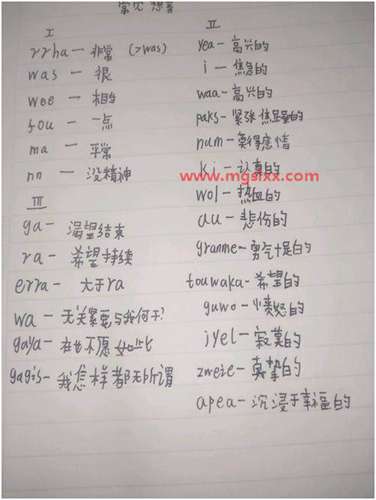 常见想音
I
rrha — 非常 (>was)
was — 很
wee — 相当
fou — 一点
ma — 平常
nn — 没精神
III
ga — 渴望结束
ra — 希望持续
erra — 大于ra
wa — 无关紧要与我何干?
gaya — 在也不愿如此
gagis — 我怎样都无所谓
II
yea — 高兴的
i — 焦急的
waa — 高兴的
paks — 紧张焦虑的
num — 莫得感情
ki — 认真的
wol — 热血的
au — 悲伤的
granme — 勇气十足的
touwaka — 希望的
guwo — 愤怒的
jyel — 寂寞的
zweie — 真挚的
apea — 沉浸于幸福的
www.mgsixx.com